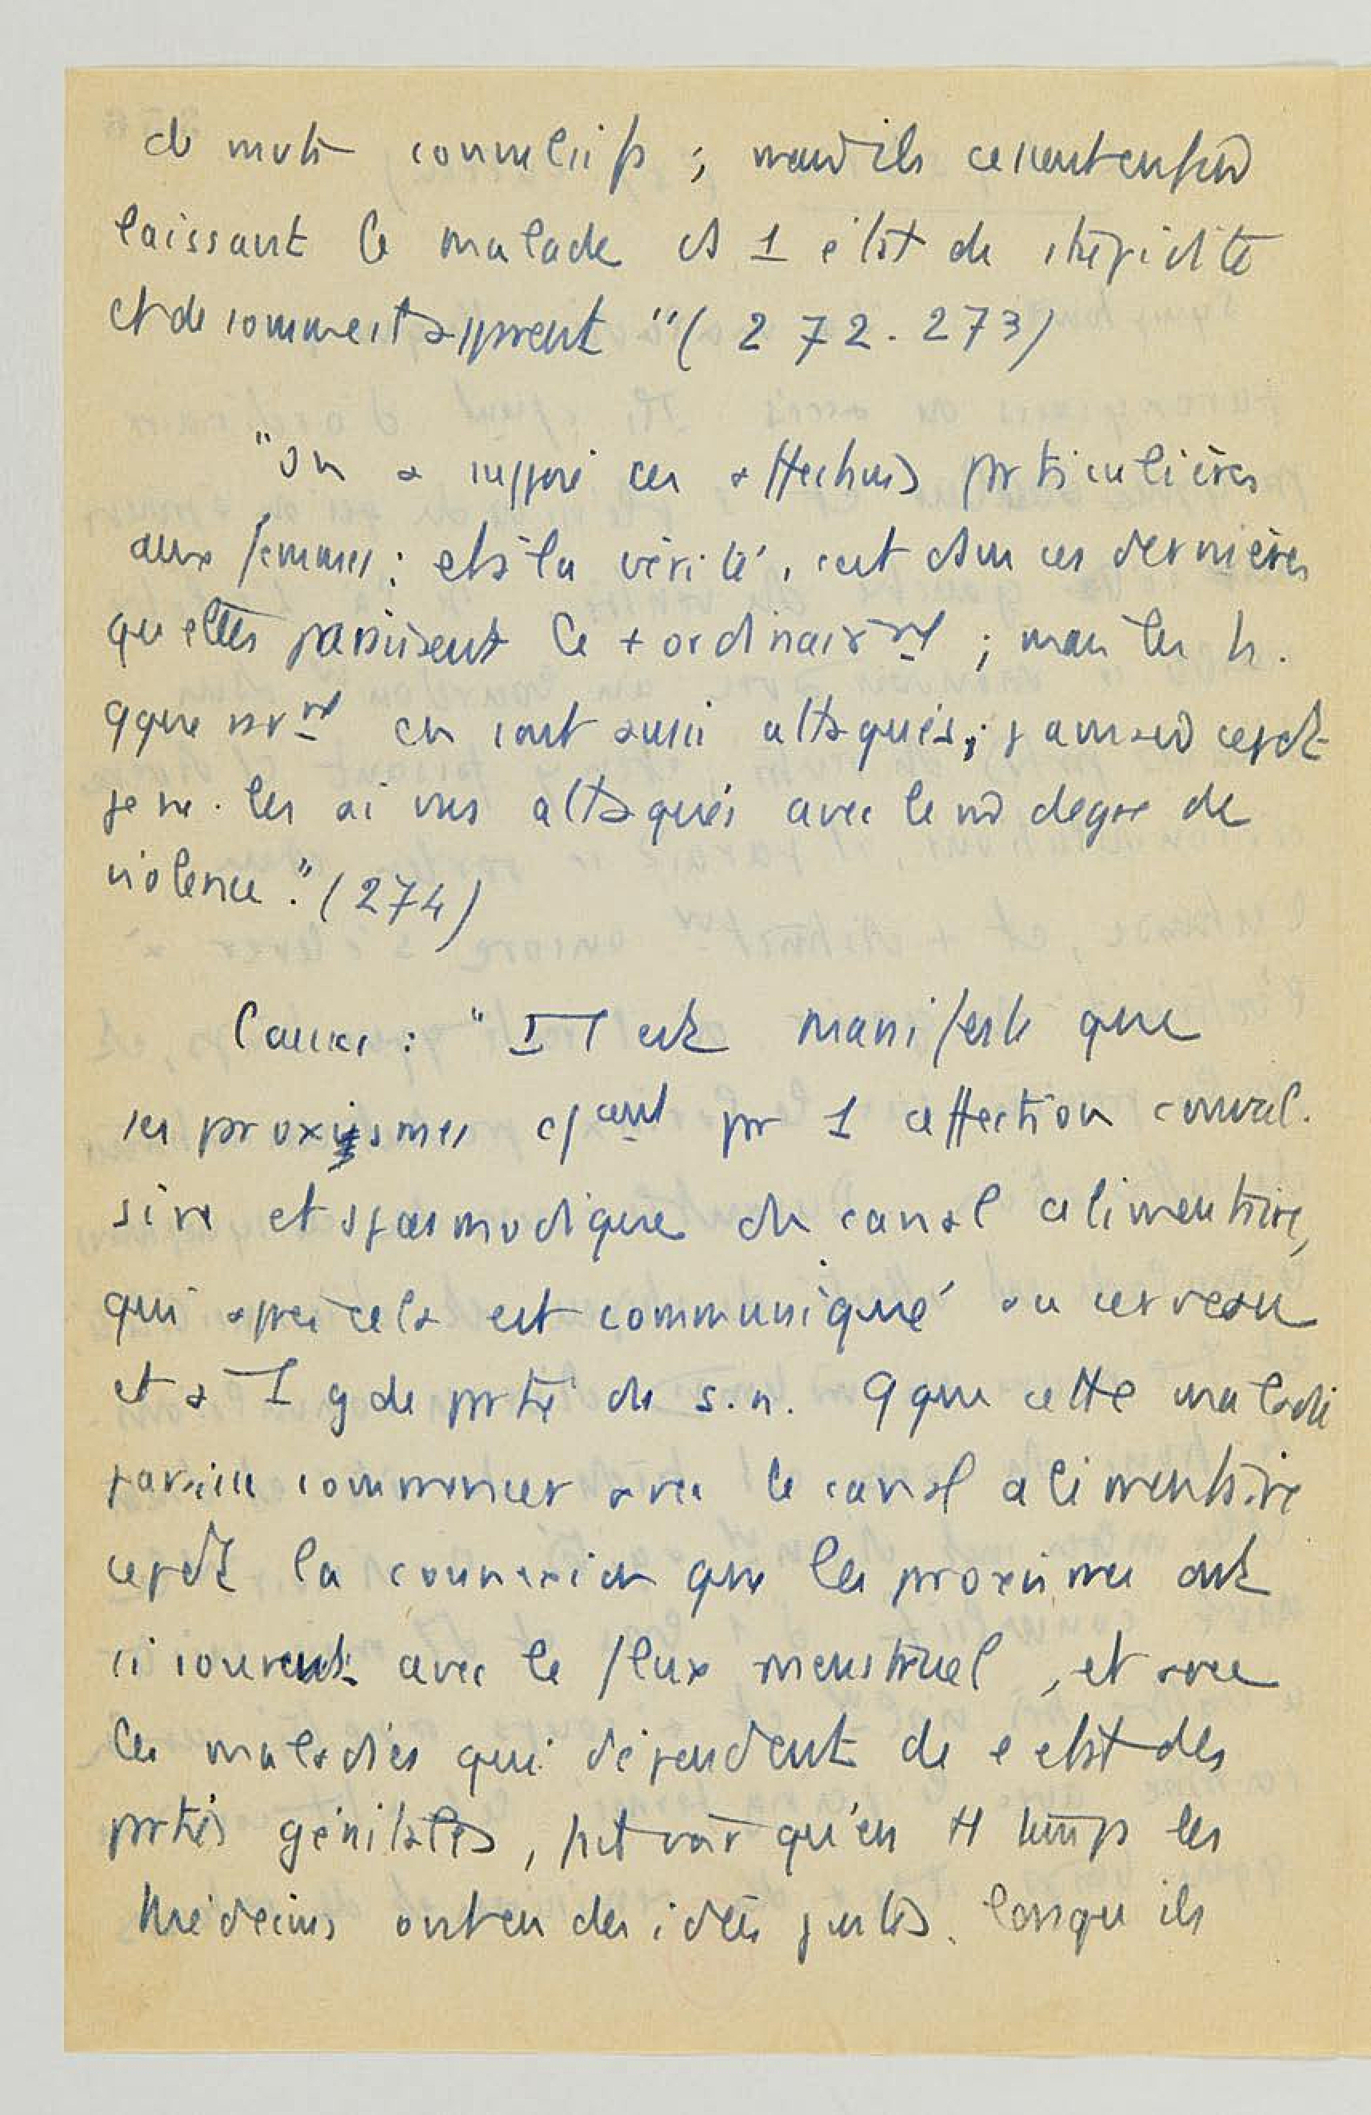 de mvts convulsifs ; mais ils cessent enfin
laissant le malade ds 1 état de stupidité
et de sommeil apparent" (272.273)
"On a supposé ces affections prticulières
aux femmes : et à la vérité, c'est chez ces dernières
qu'elles paraissent le + ordinairmt ; mais les h.
qque rarmt en sont aussi attaqués ; jamais cepdt
je ne les ai vus attaqués avec le m̂ degré de
violence." (274)
Causes : "Il est manifeste que
ces proxysmes cſcent pr 1 affection convul.
sive et spasmodique du canal alimentaire,
qui après cela est communiqué au cerveau
et à 1 gde prtie du s.n. Qque cette maladie
paraisse commencer avec le canal alimentaire
cepdt la connexion que les proxismes ont
si souvent avec le flux menstruel, et avec
les maladies qui dépendent de l'état des
prties génitales, fait voir qu'en tt temps les
Médecins ont eu des idées justes, lorsqu'ils